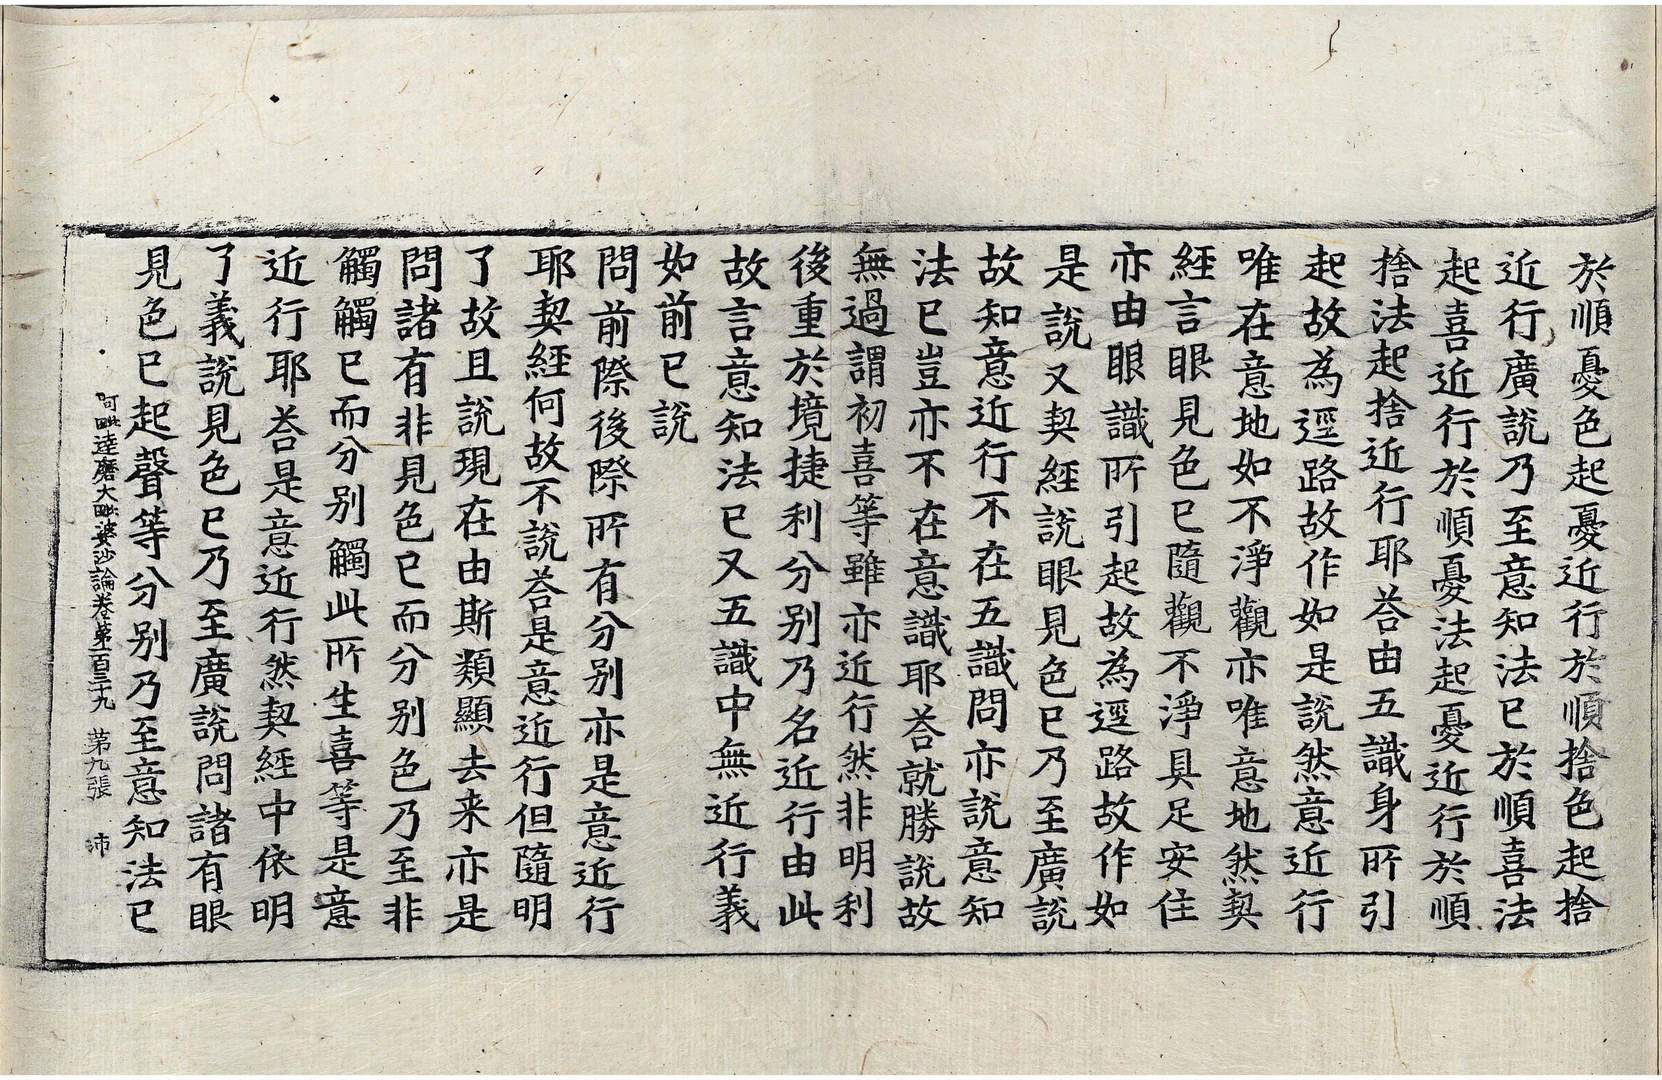 於順憂色起憂近行於順捨色起捨
近行廣說乃至意知法已於順喜法
起喜近行於順憂法起憂近行於順
捨法起捨近行耶荅由五識身所引
起故為逕路故作如是說然意近行
唯在意地如不淨觀亦唯意地然契
經言眼見色已隨觀不淨具足安住
亦由眼識所引起故為逕路故作如
是說又契經說眼見色已乃至廣說
故知意近行不在五識問亦說意知
法已豈亦不在意識耶荅就勝說故
無過謂初喜等雖亦近行然非明利
後重於境捷利分别乃名近行由此
故言意知法已又五識中無近行義
如前已說
問前際後際所有分别亦是意近行
耶契經何故不說荅是意近行但隨明
了故且說現在由斯類顯去来亦是
問諸有非見色已而分别色乃至非
觸觸已而分别觸此所生喜等是意
近行耶荅是意近行然契經中依明
了義說見色已乃至廣說問諸有眼
見色已起聲等分别乃至意知法已
阿毗達磨大毗婆沙論卷第一百三十九 第九張 沛